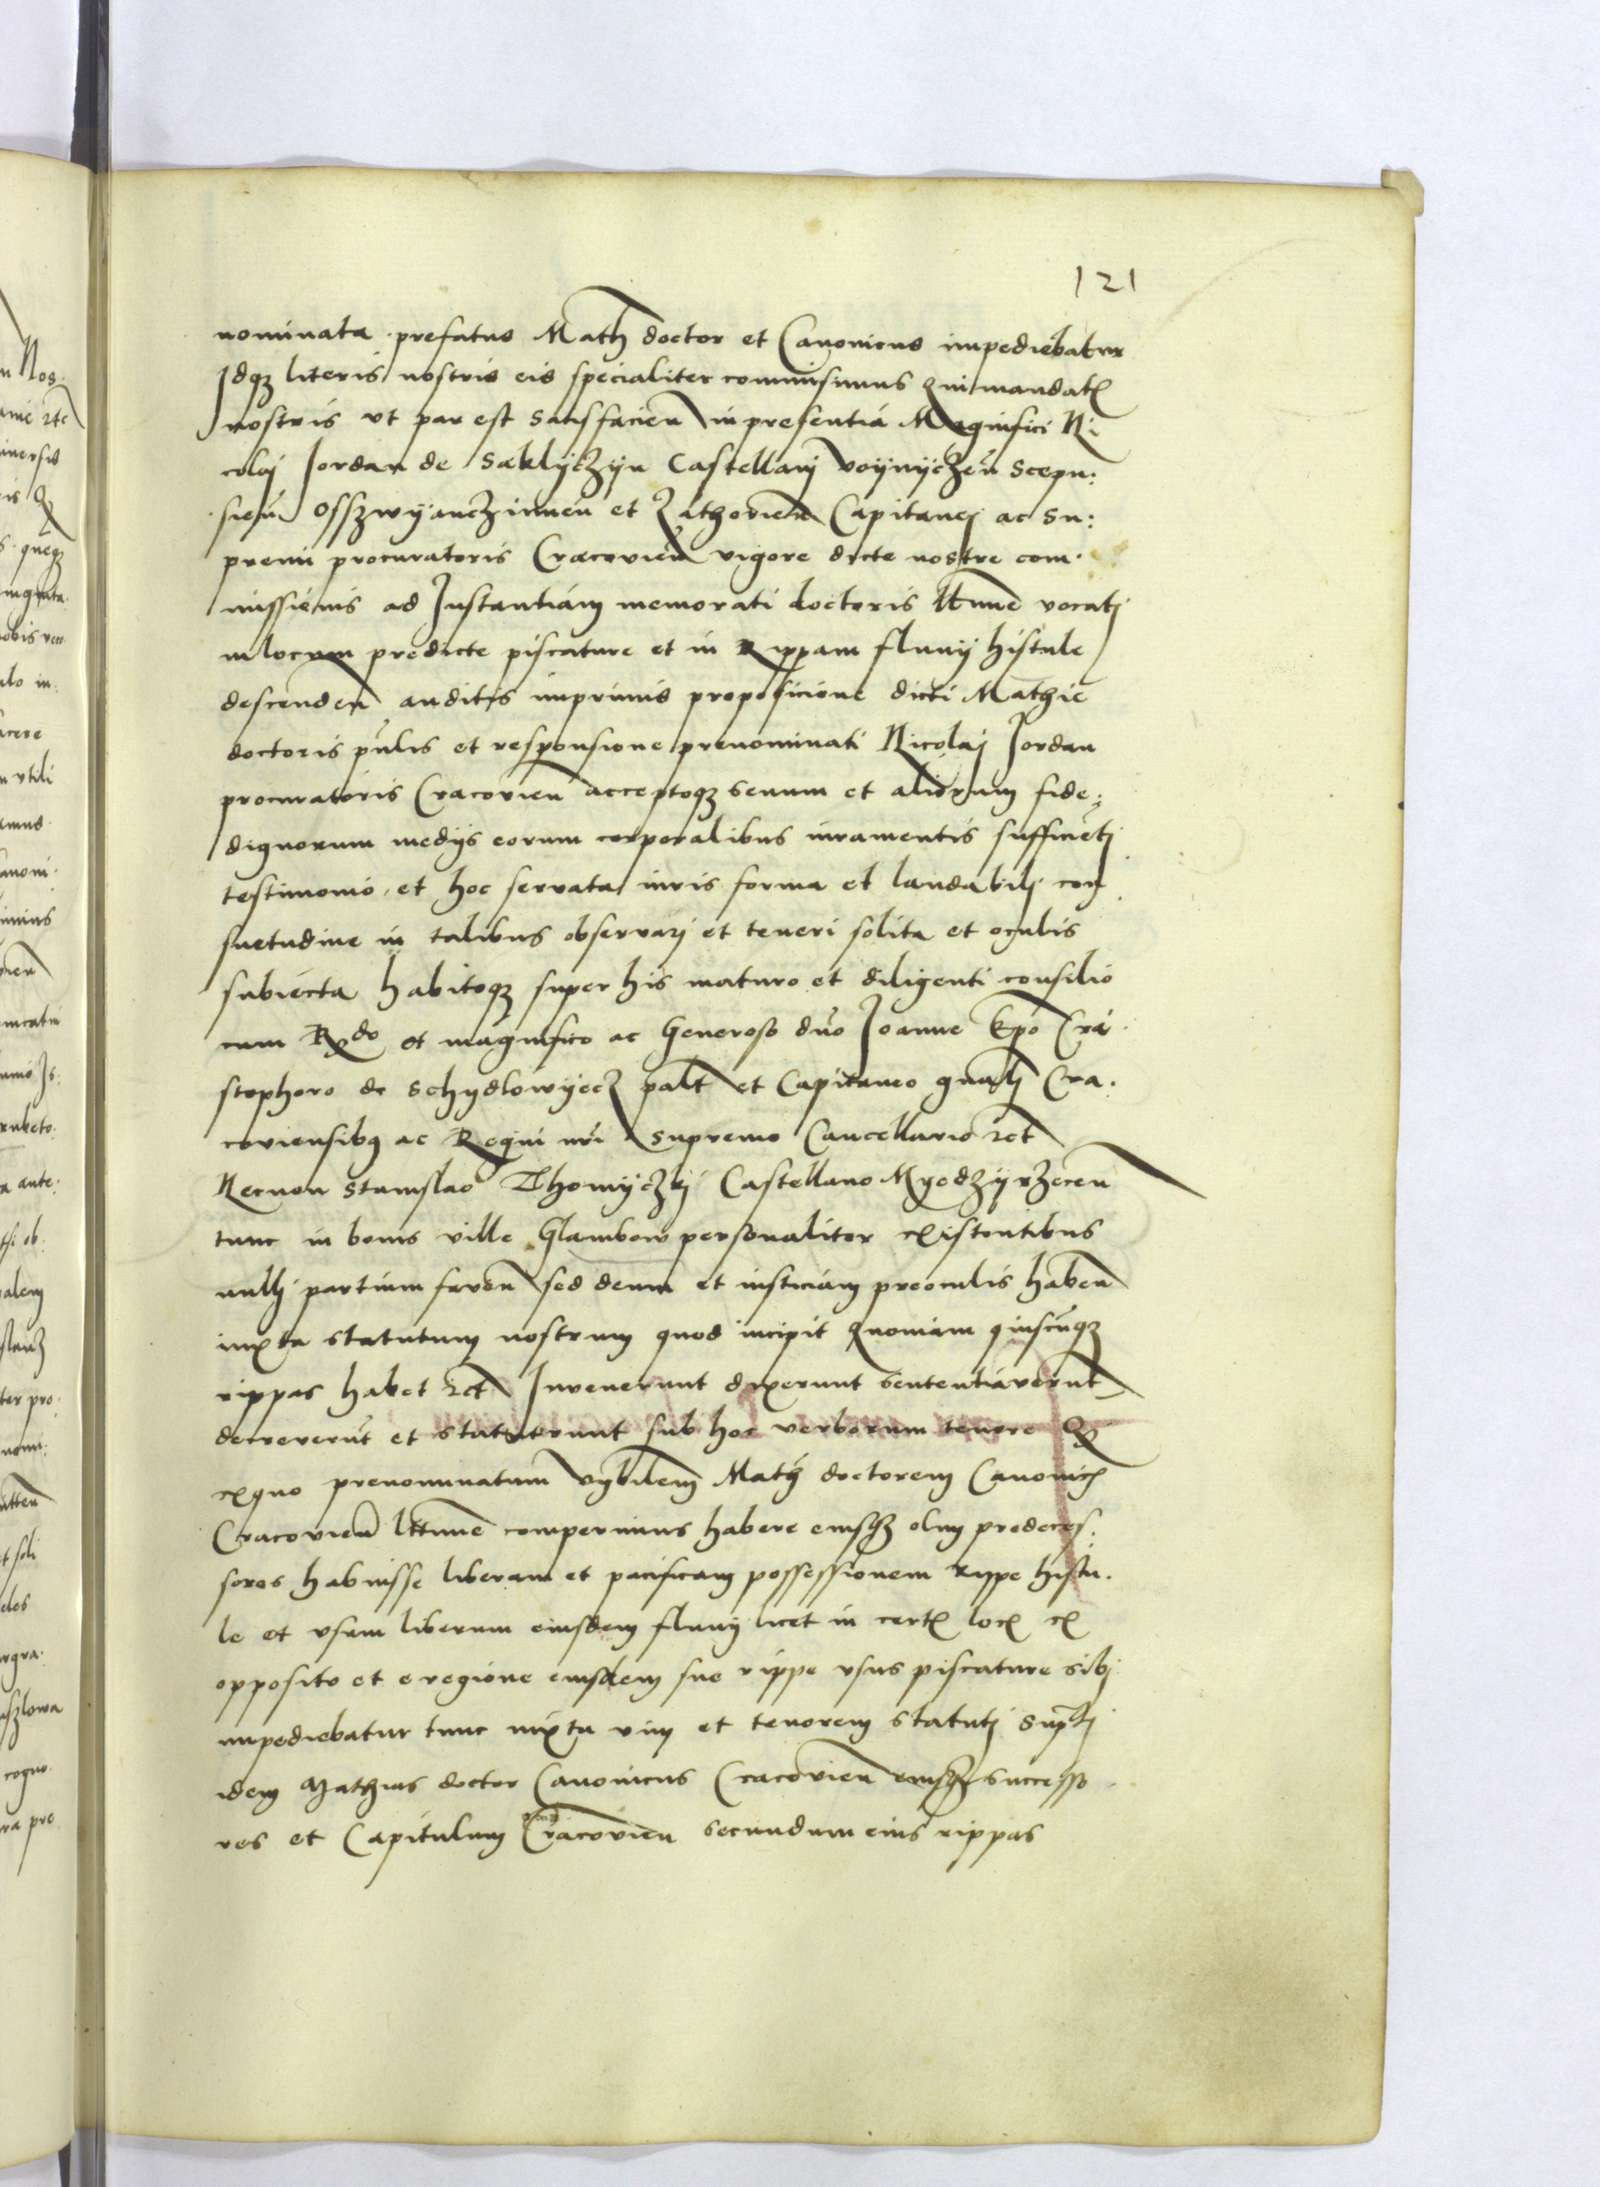 121
nominata prefatus Math doctor et Canonicus impediebatur
Idqz literis nostris eis specialiter commisimus qui mandat
nostris vt par est satisfacien in presentia Magnifici Ni
colaj Jordan de Saklyczyn Castellanj voynyczen Scepu:
sien Osszwyanczimen et Zathorien Capitanej ac Su:
premi procuratoris Cracovien vigore dicte nostre com
missionis ad Instantiam memorati doctoris vocatj
in locum predicte piscature et in Rippam fluuij histule
descenden auditis inprimis proposicione dicti Mathie
doctoris et responsione prenominati Nicolaj Jordan
procuratoris Cracovien acceptoqz senum et aliorum fide:
dignorum medijs eorum corporalibus iuramentis sufficietj
testimonio et hoc servata iuris forma et laudabilj con
suetudine in talibus observarj et teneri solita et oculis
subiecta habitoqz super his maturo et diligenti consilio
cum Rdo et magnifico ac Generoso dno Joanne Epo Cri
stophoro de Schydlowyecz palt et Capitaneo gnalj Cra
coviensibq ac Regni nri supremo Cancellario
Necnon Stanislao Thomyczkj Castellano Myedzyrzecen
tunc in bonis ville Glambow personaliter existentibus
nullj partium faven sed deum et iusticiam preoculis haben
iuxta statutum nostrum quod incipit quoniam quiscuqz
rippas habet Invenerunt dixerunt sententiaverut
decreverut et statuerunt sub hoc verborum tenore
exquo prenominatum Math doctorem Canonic
Cracovien comperimus habere eiusqz olim predeces
sores habuisse liberam et pacificam possessionem rippe histu
le et vsum liberum eiusdem fluuij licet in cert loc ex
opposito et e regione eiusdem sue rippe vsus piscature sibj
impediebatur tunc iuxta vim et tenorem statutj
idem Mathias doctor Canonicus Cracovien eiusqz successo
res et Capitulum Cracovien secundum eius rippas